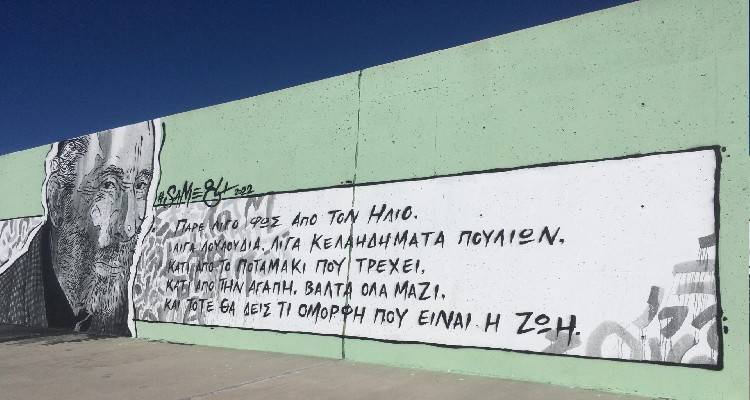 SAME84
2022
ΠΑΡΕ ΛΙΓΟ ΦΩΣ ΑΠΟ ΤΟΝ ΗΛΙΟ.
ΛΙΓΑ ΛΟΥΛΟΥΔΙΑ, ΛΙΓΑ ΚΕΛΑΗΔΗΜΑΤΑ ΠΟΥΛΙΩΝ,
ΚΑΤΙ ΑΠΟ ΤΟ ΠΟΤΑΜΑΚΙ ΠΟΥ ΤΡΕΧΕΙ,
ΚΑΤΙ ΑΠΟ ΤΗΝ ΑΓΑΠΗ, ΒΑΛΤΑ ΟΛΑ ΜΑΖΙ,
ΚΑΙ ΤΟΤΕ ΘΑ ΔΕΙΣ ΤΙ ΟΜΟΡΦΗ ΠΟΥ ΕΙΝΑΙ Η ΖΩΗ.